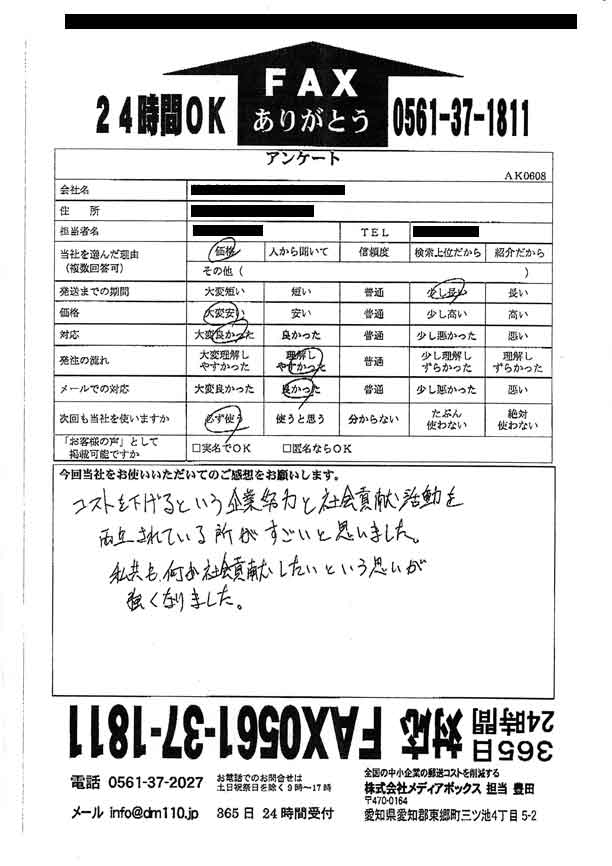 FAX
ありがとう
24時間OK
0561-37-1811
アンケート
AK0608
会社名
住 所
担当者名 TEL
当社を選んだ理由 (複数回答可) 価格 人から聞いて 信頼度 検索上位だから 紹介だから
その他 ( )
発送までの期間 大変短い 短い 普通 少し長い 長い
価格 大変安い 安い 普通 少し高い 高い
対応 大変良かった 良かった 普通 少し悪かった 悪い
発注の流れ 大変理解しやすかった 理解しやすかった 普通 少し理解しずらかった 理解しずらかった
メールでの対応 大変良かった 良かった 普通 少し悪かった 悪い
次回も当社を使いますか 必ず使う 使うと思う 分からない たぶん使わない 絶対使わない
「お客様の声」として掲載可能ですか □実名でOK □匿名ならOK
今回当社をお使いいただいてのご感想をお願いします。
コストを下げるという企業努力と社会貢献活動を
両立されている所がすごいと思いました。
私共も何か社会貢献したいという思いが
強くなりました。
365日24時間対応 FAX0561-37-1811
電話 0561-37-2027
お電話でのお問合せは
土日祝祭日を除く9~17時
メール info@dm110.jp 365日24時間受付
全国の中小企業の郵送コストを削減する
株式会社メディアボックス 担当 豊田
〒470-0164
愛知県愛知郡東郷町三ツ池4丁目5-2